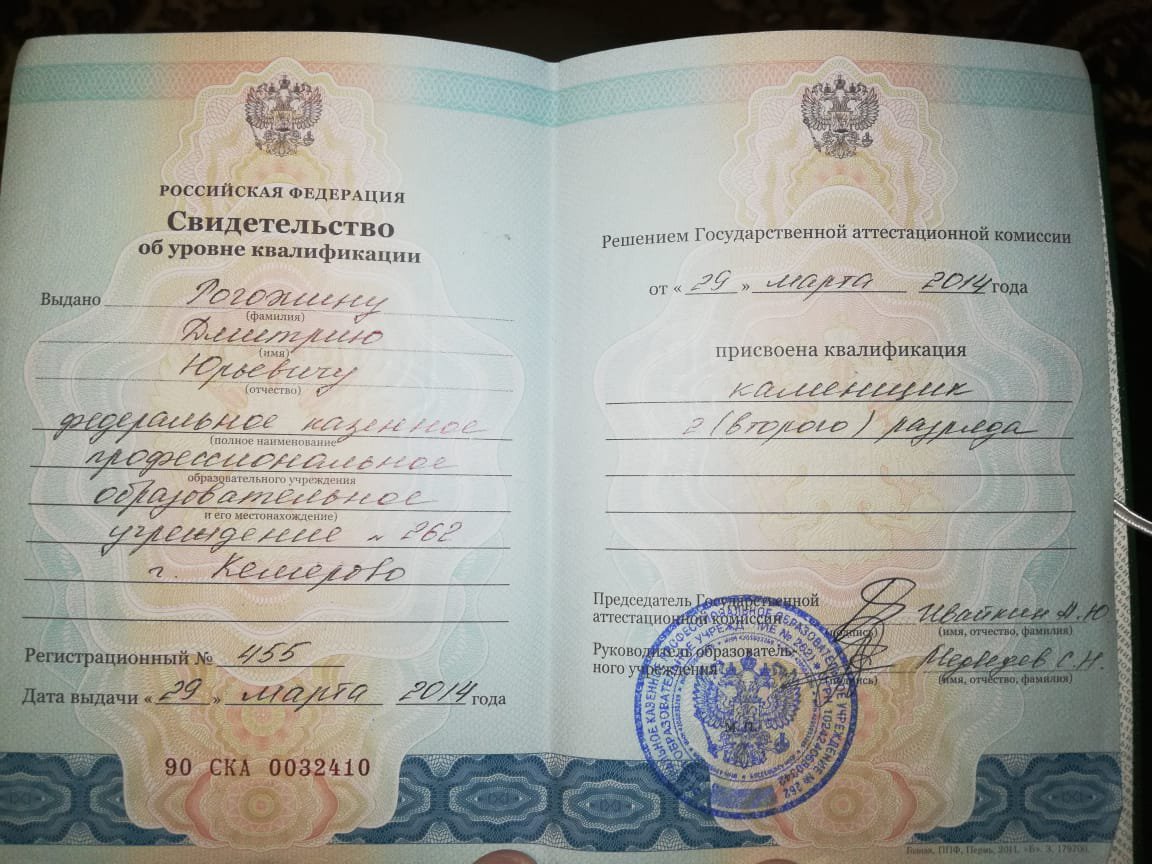 РОССИЙСКАЯ ФЕДЕРАЦИЯ
Свидетельство
об уровне квалификации
Выдано Рогожину
(фамилия)
Дмитрию
(имя)
Юрьевичу
(отчество)
федеральное казенное
(полное наименование
профессиональное
образовательного учреждения
образовательное
и его местонахождение)
учреждение № 262
г. Кемерово
Регистрационный № 455
Дата выдачи « 29 » марта 2014 года
90 СКА 0032410
Решением Государственной аттестационной комиссии
от « 29 » марта 2014 года
присвоена квалификация
каменщик
2 (второго) разряда
Председатель Государственной
аттестационной комиссии Ивайкин А.Ю
(подпись) (имя, отчество, фамилия)
Руководитель образователь-
ного учреждения Медведев С.Н.
(подпись) (имя, отчество, фамилия)
М.П.
УЧРЕЖДЕНИЕ № 262
Гознак, ППФ, Пермь, 2011, «В».